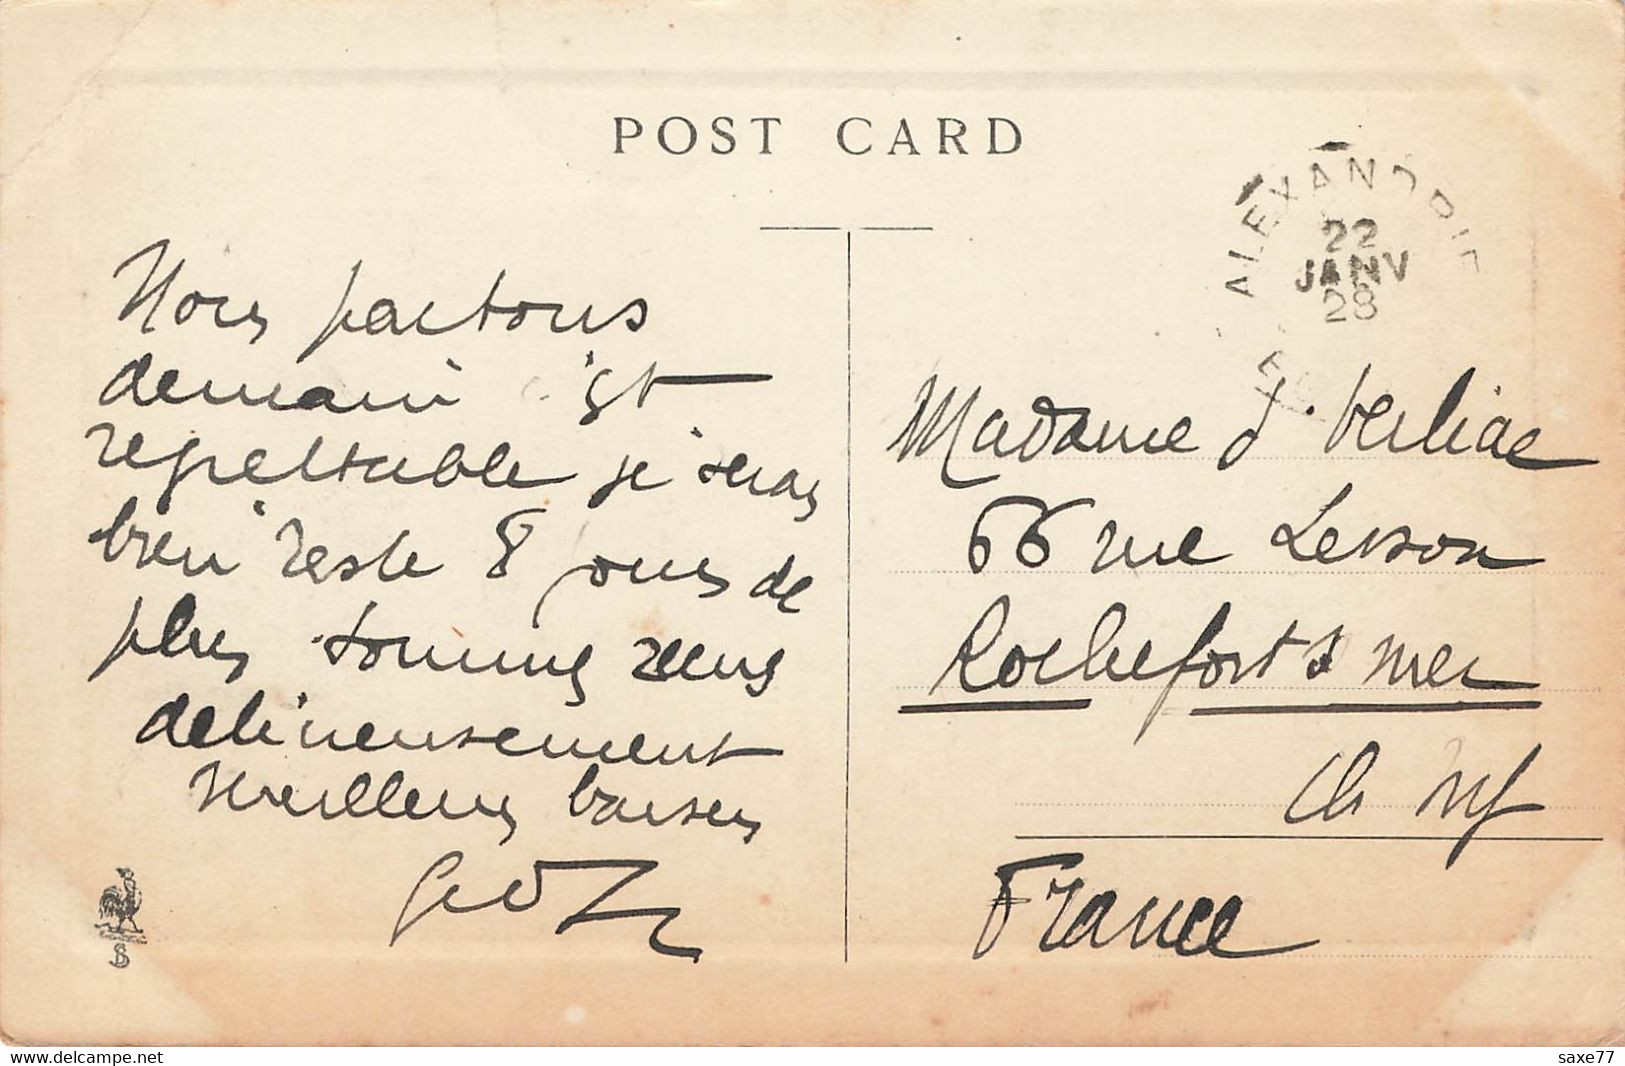 POST CARD
ALEXANDRIE
22
JANV
28
Nous partons
demain c'est
regrettable je serais
bien reste 8 jours de
plus
delicieusement
Meilleurs baisers
Madame d'
66 rue Lesson
Rochefort s mer
Ch Inf
France
SB
delcampe.net
saxe77